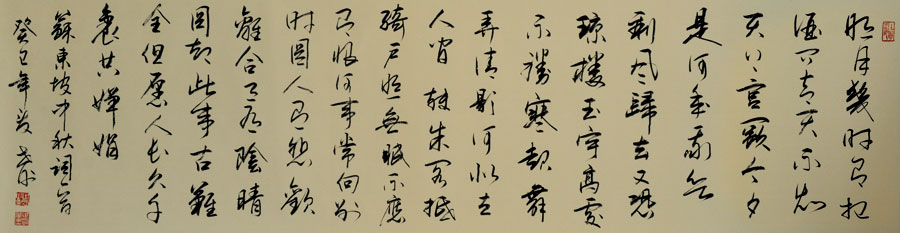 明月幾時有把
酒問青天不知
天上宮闕今夕
是何年我欲
乘风歸去又恐
瓊樓玉宇高處
不勝寒起舞
弄清影何似在
人間轉朱閣低
綺戶照無眠不應
有恨何事常向別
時圓人有悲歡
離合月有陰晴
圓缺此事古難
全但願人長久千
里共嬋娟
蘇東坡中秋詞一首
癸巳年